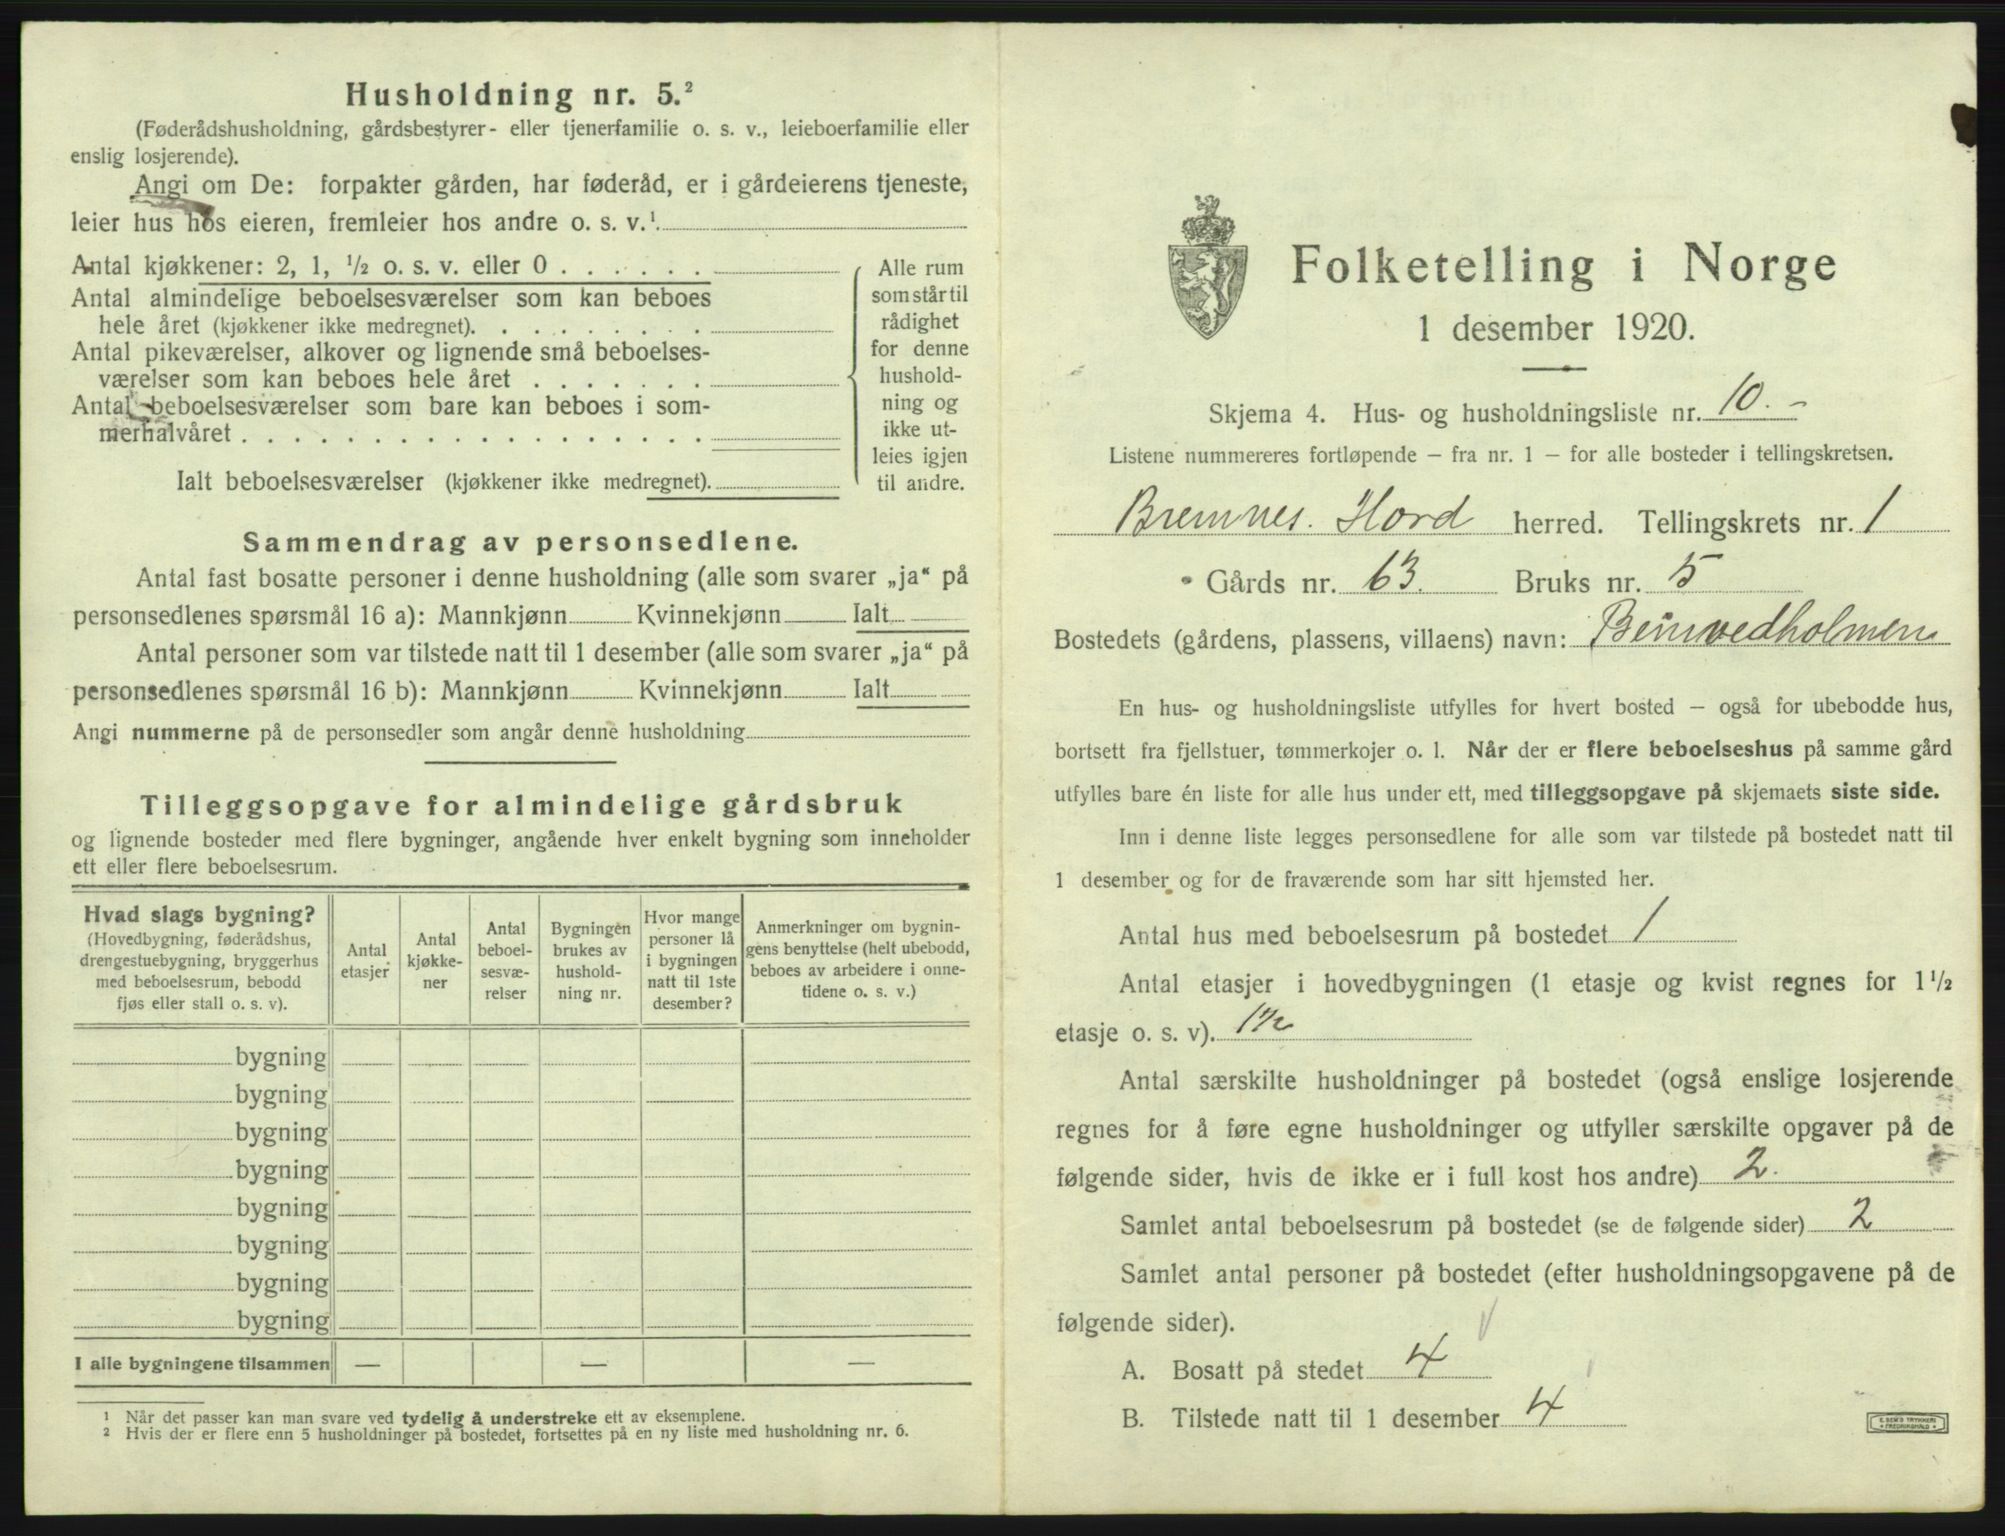 Husholdning nr. 5.²
(Føderådshusholdning, gårdsbestyrer- eller tjenerfamilie o. s. v., leieboerfamilie eller
enslig losjerende).
Angi om De: forpakter gården, har føderåd, er i gårdeierens tjeneste,
leier hus hos eieren, fremleier hos andre o. s. v.¹
Antal kjøkkener: 2, 1, ½ o. s. v. eller 0 . . . . . .
Antal almindelige beboelsesværelser som kan beboes
hele året (kjøkkener ikke medregnet). . . . . . . . .
Antal pikeværelser, alkover og lignende små beboelses-
værelser som kan beboes hele året . . . . . . .
Antal beboelsesværelser som bare kan beboes i som-
merhalvåret . . . . . . . . . . . . . . . . . .
Ialt beboelsesværelser (kjøkkener ikke medregnet).
Alle rum
som står til
rådighet
for denne
hushold-
ning og
ikke ut-
leies igjen
til andre.
Sammendrag av personsedlene.
Antal fast bosatte personer i denne husholdning (alle som svarer „ja“ på
personsedlenes spørsmål 16 a): Mannkjønn Kvinnekjønn Ialt
Antal personer som var tilstede natt til 1 desember (alle som svarer „ja“ på
personsedlenes spørsmål 16 b): Mannkjønn Kvinnekjønn Ialt
Angi nummerne på de personsedler som angår denne husholdning
Tilleggsopgave for almindelige gårdsbruk
og lignende bosteder med flere bygninger, angående hver enkelt bygning som inneholder
ett eller flere beboelsesrum.
Hvad slags bygning?
(Hovedbygning, føderådshus,
drengestuebygning, bryggerhus
med beboelsesrum, bebodd
fjøs eller stall o. s. v).
Antal
etasjer
Antal
kjøkke-
ner
Antal
beboel-
sesvæ-
relser
Bygningen
brukes av
hushold-
ning nr.
Hvor mange
personer lå
i bygningen
natt til 1ste
desember?
Anmerkninger om bygnin-
gens benyttelse (helt ubebodd,
beboes av arbeidere i onne-
tidene o. s. v.)
bygning
bygning
bygning
bygning
bygning
bygning
bygning
bygning
I alle bygningene tilsammen — — —
¹ Når det passer kan man svare ved tydelig å understreke ett av eksemplene.
² Hvis der er flere enn 5 husholdninger på bostedet, fortsettes på en ny liste med husholdning nr. 6.
Folketelling i Norge
1 desember 1920.
Skjema 4. Hus- og husholdningsliste nr. 10. -
Listene nummereres fortløpende – fra nr. 1 – for alle bosteder i tellingskretsen.
Bremnes. Hord herred. Tellingskrets nr. 1
Gårds nr. 63. Bruks nr. 5
Bostedets (gårdens, plassens, villaens) navn:
En hus- og husholdningsliste utfylles for hvert bosted – også for ubebodde hus,
bortsett fra fjellstuer, tømmerkojer o. l. Når der er flere beboelseshus på samme gård
utfylles bare én liste for alle hus under ett, med tilleggsopgave på skjemaets siste side.
Inn i denne liste legges personsedlene for alle som var tilstede på bostedet natt til
1 desember og for de fraværende som har sitt hjemsted her.
Antal hus med beboelsesrum på bostedet 1
Antal etasjer i hovedbygningen (1 etasje og kvist regnes for 1½
etasje o. s. v). 1½
Antal særskilte husholdninger på bostedet (også enslige losjerende
regnes for å føre egne husholdninger og utfyller særskilte opgaver på de
følgende sider, hvis de ikke er i full kost hos andre) 2.
Samlet antal beboelsesrum på bostedet (se de følgende sider) 2
Samlet antal personer på bostedet (efter husholdningsopgavene på de
følgende sider).
A. Bosatt på stedet 4
B. Tilstede natt til 1 desember 4
E. SEM'S TRYKKERI
FREDRIKSHALD